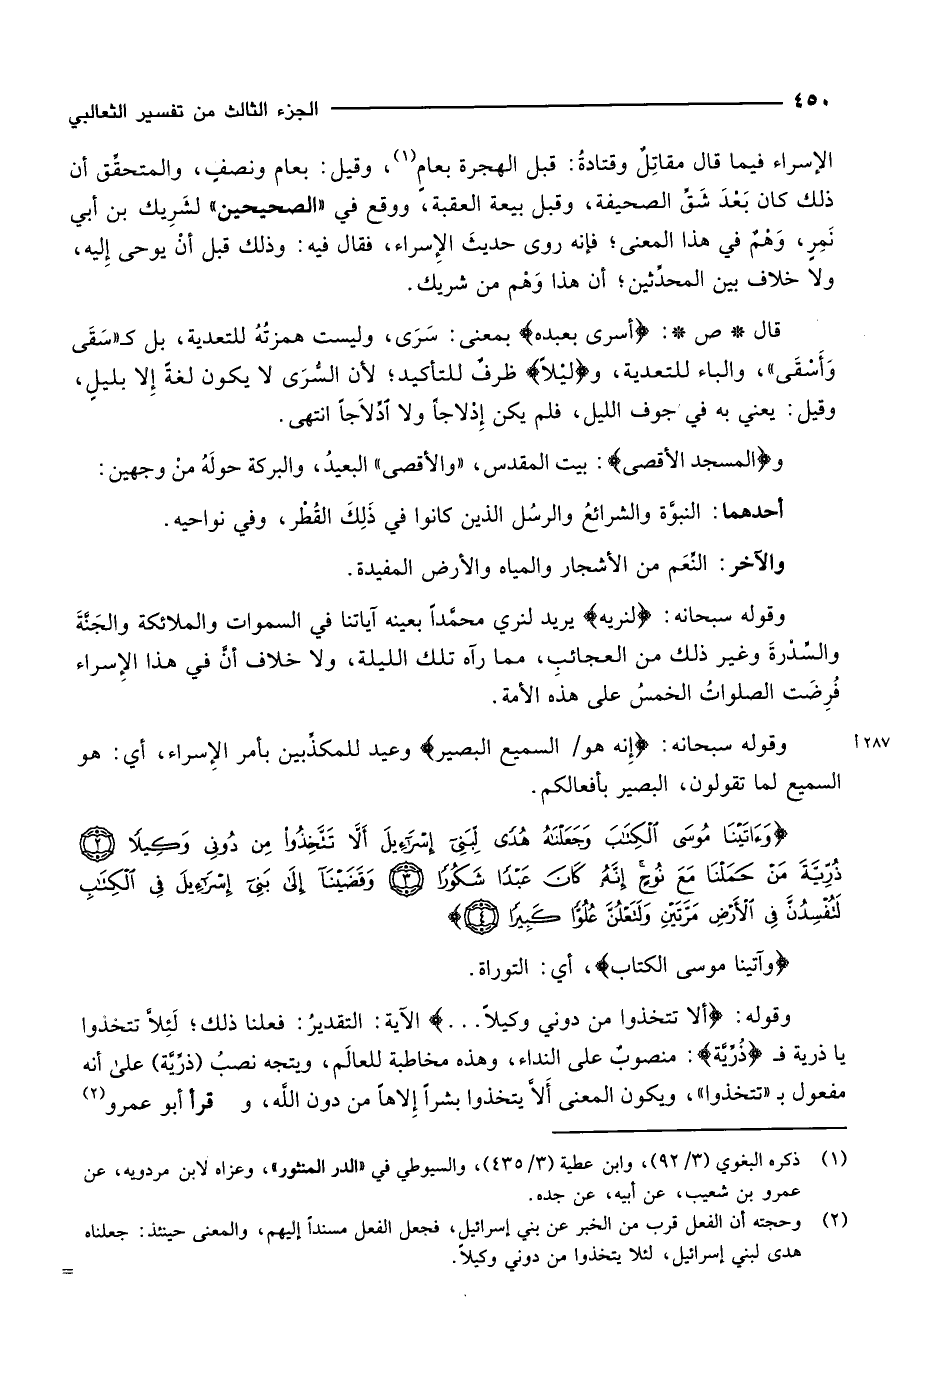 ٤٥٠ ــــــ الجزء الثالث من تفسير الثعالبي
الإسراء فيما قال مقاتِلٌ وقتادةُ: قبل الهجرة بعام(١)، وقيل: بعام ونصفٍ، والمتحقِّق أن
ذلك كان بَعْدَ شَقِّ الصحيفة، وقبل بيعة العقبة، ووقع في «الصحيحين» لشَرِيك بن أبي
نَمِرٍ، وَهْمٌ في هذا المعنى؛ فإنه روى حديثَ الإِسراء، فقال فيه: وذلك قبل أنْ يوحى إِليه،
ولا خلاف بين المحدِّثين؛ أن هذا وَهْم من شريك.
قال * ص *: ﴿أسرى بعبده﴾ بمعنى: سَرَى، وليست همزتُهُ للتعدية، بل كـ«سَقَى
وَأَسْقَى»، والباء للتعدية، و﴿لَيْلاً﴾ ظرفٌ للتأكيد؛ لأن السُّرَى لا يكون لغةً إلا بليلٍ،
وقيل: يعني به في جوف الليل، فلم يكن إِدْلاجاً ولا ٱدِّلاَجاً انتهى.
و﴿المسجد الأقصى﴾: بيت المقدس، «والأقصى» البعيدُ، والبركة حولَهُ منْ وجهين:
أحدهما: النبوَّة والشرائعُ والرسُل الذين كانوا في ذَلِكَ القُطْر، وفي نواحيه.
والآخر: النِّعَم من الأشجار والمياه والأرض المفيدة.
وقوله سبحانه: ﴿لنريه﴾ يريد لنري محمَّداً بعينه آياتنا في السموات والملائكة والجَنَّةَ
والسِّدْرةَ وغير ذلك من العجائبِ، مما رآه تلك الليلة، ولا خلاف أنَّ في هذا الإِسراء
فُرِضَت الصلواتُ الخمسُ على هذه الأمة.
وقوله سبحانه: ﴿إنه هو/ السميع البصير﴾ وعيد للمكذِّبين بأمر الإِسراء، أي: هو ٢٨٧ أ
السميع لما تقولون، البصير بأفعالكم.
﴿وَءَاتَيْنَا مُوسَى ٱلْكِتَٰبَ وَجَعَلْنَٰهُ هُدًى لِّبَنِىٓ إِسْرَٰٓءِيلَ أَلَّا تَتَّخِذُوا۟ مِن دُونِى وَكِيلًا ﴿٢﴾
ذُرِّيَّةَ مَنْ حَمَلْنَا مَعَ نُوحٍ ۚ إِنَّهُۥ كَانَ عَبْدًا شَكُورًا ﴿٣﴾ وَقَضَيْنَآ إِلَىٰ بَنِىٓ إِسْرَٰٓءِيلَ فِى ٱلْكِتَٰبِ
لَتُفْسِدُنَّ فِى ٱلْأَرْضِ مَرَّتَيْنِ وَلَتَعْلُنَّ عُلُوًّا كَبِيرًا ﴿٤﴾﴾
﴿وآتينا موسى الكتاب﴾، أي: التوراة.
وقوله: ﴿ألا تتخذوا من دوني وكيلاً...﴾ الآية: التقديرُ: فعلنا ذلك؛ لَئِلاَّ تتخذوا
يا ذرية فـ ﴿ذُرِّيَّة﴾: منصوبٌ على النداء، وهذه مخاطبة للعالَم، ويتجه نصبُ (ذرِّيَّة) علىٰ أنه
مفعول بـ «تتخذوا»، ويكون المعنى أَلاَّ يتخذوا بشراً إِلاهاً من دون اللَّه، و قرأ أبو عمرو(٢)
(١) ذكره البغوي (٣/ ٩٢)، وابن عطية (٣/ ٤٣٥)، والسيوطي في «الدر المنثور»، وعزاه لابن مردويه، عن
عمرو بن شعيب، عن أبيه، عن جده.
(٢) وحجته أن الفعل قرب من الخبر عن بني إسرائيل، فجعل الفعل مسنداً إليهم، والمعنى حينئذ: جعلناه
هدى لبني إسرائيل، لئلا يتخذوا من دوني وكيلاً.
=